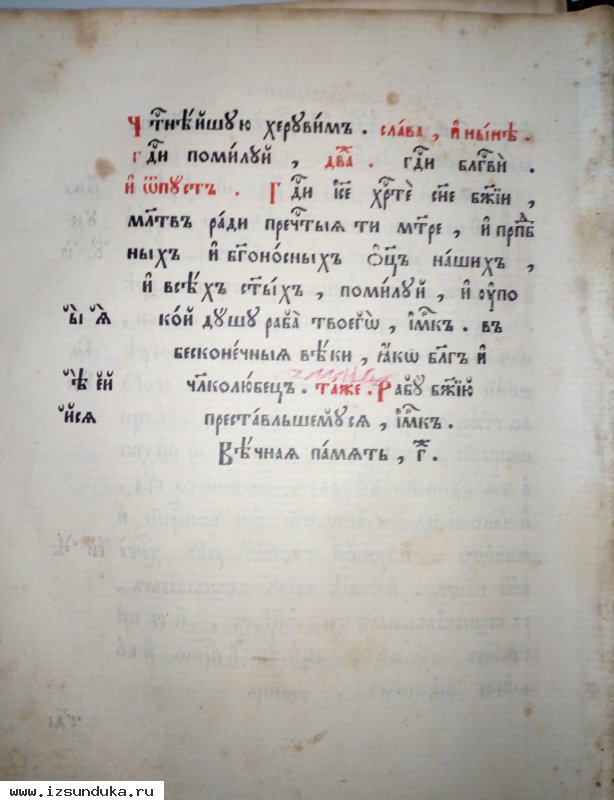 Чтⷭ҇нѣ́йшую херувимъ . сла́ва , и҆ ны́нѣ .
гдⷭ҇и поми́луй , два́ⷤ . гдⷭ҇и блгⷭ҇ви́ .
и҆ ѿпу́стъ . Гдⷭ҇и і҆се хрⷭ҇тѐ сн҃е бж҃їи ,
мл҃твъ ра́ди пречⷭ҇тыя ти мт҃ре , и҆ прпⷣб
ныхъ и҆ бг҃оно́сныхъ ѻ҆ц҃ъ на́шихъ ,
и҆ всѣ́хъ ст҃ы́хъ , поми́луй , и҆ ѹ҆по
ы и҆ ꙗ ко́й ду́шу раба̀ твоегѡ̀ , і҆мⷬ҇къ . въ
бесконе́чныя вѣ́ки , ꙗ҆́кѡ бл҃гъ и҆
ѣ ей чл҃колю́бецъ . та́же . Рабу̀ бж҃їю
йся преста́вльшемуся , і҆мⷬ҇къ .
Вѣ́чная па́мять , г҃ .
www.izsunduka.ru